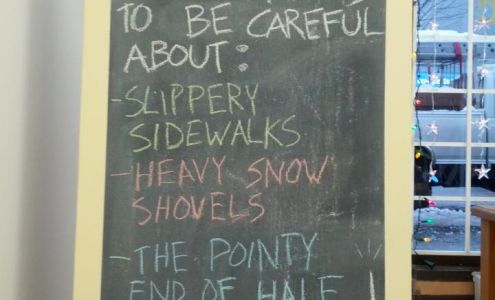 TO BE CAREFUL
ABOUT:
-SLIPPERY
SIDEWALKS
-HEAVY SNOW
SHOVELS
-THE POINTY
END OF HALF